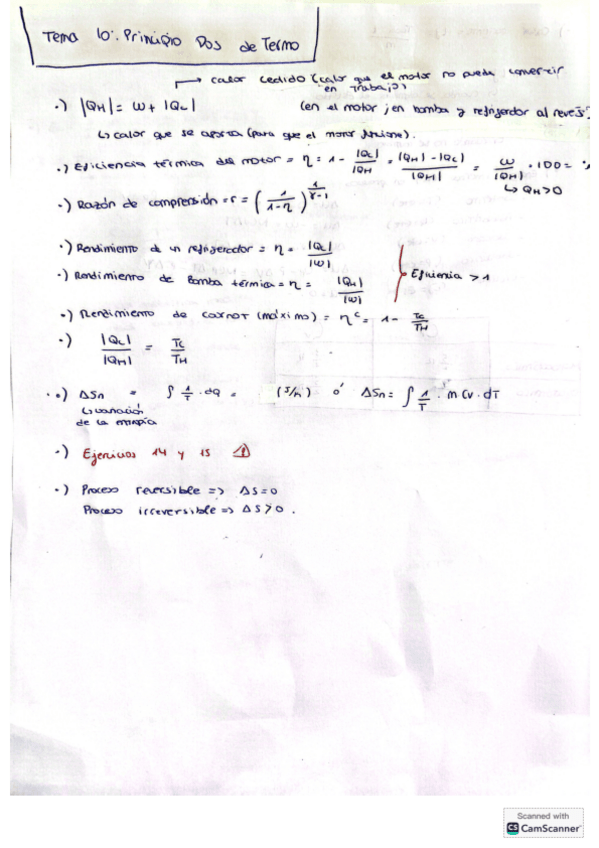 Tema 10: Principio Dos de Termo
→ calor cedido (calor que el motor no puede convertir
en trabajo)
·) |QH| = W + |QC| (en el motor, en bomba y refrigerador al revés)
↳ calor que se aporta (para que el motor funcione).
·) Eficiencia térmica del motor = η = 1 - |QC|/|QH| = |QH| - |QC|/|QH| = W/|QH| · 100 = %
↳ QH > 0
·) Razón de compresión = r = (1/1-η)^1/γ-1
·) Rendimiento de un refrigerador = η = |QC|/|W|
·) Rendimiento de Bomba térmica = η = |QH|/|W|
Eficiencia > 1
·) Rendimiento de Carnot (máximo) = ηᶜ = 1 - TC/TH
·) |QC|/|QH| = TC/TH
·) ΔSn = ∫ 1/T · dQ = (J/K) ó ΔSn = ∫ 1/T · m Cv · dT
↳ variación
de la entropía
·) Ejercicios 14 y 15 ⚠
·) Proceso reversible => ΔS = 0
Proceso irreversible => ΔS > 0.
Scanned with
CS CamScanner